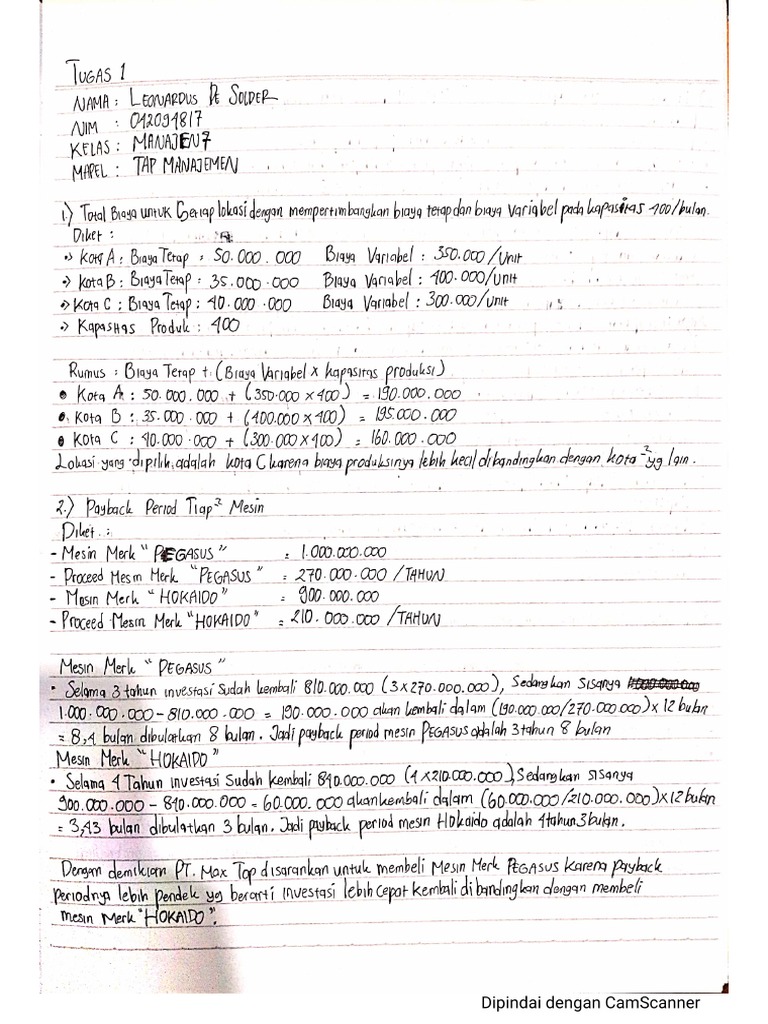 TUGAS 1
NAMA : LEONARDUS DE SOLDER
NIM : 042094817
KELAS : MANAJEN7
MAPEL : TAP MANAJEMEN
1.) Total Biaya untuk Setiap lokasi dengan mempertimbangkan biaya tetap dan biaya variabel pada kapasitas 400/bulan.
Diket :
•> Kota A : Biaya Tetap : 50.000.000 Biaya Variabel : 350.000/Unit
•> Kota B : Biaya Tetap : 35.000.000 Biaya Variabel : 400.000/Unit
•> Kota C : Biaya Tetap : 40.000.000 Biaya Variabel : 300.000/Unit
•> Kapasitas Produk : 400
Rumus : Biaya Tetap + (Biaya Variabel x kapasitas produksi)
• Kota A : 50.000.000 + (350.000 x 400) = 190.000.000
• Kota B : 35.000.000 + (400.000 x 400) = 195.000.000
• Kota C : 40.000.000 + (300.000 x 400) = 160.000.000
Lokasi yang dipilih adalah kota C karena biaya produksinya lebih kecil dibandingkan dengan kota-² yg lain.
2.) Payback Period Tiap² Mesin
Diket :
- Mesin Merk "PEGASUS" = 1.000.000.000
- Proceed Mesin Merk "PEGASUS" = 270.000.000 / TAHUN
- Mesin Merk "HOKAIDO" = 900.000.000
- Proceed Mesin Merk "HOKAIDO" = 210.000.000 / TAHUN
Mesin Merk "PEGASUS"
• Selama 3 tahun investasi sudah kembali 810.000.000 (3 x 270.000.000), Sedangkan sisanya
1.000.000.000 - 810.000.000 = 190.000.000 akan kembali dalam (190.000.000/270.000.000) x 12 bulan
= 8,4 bulan dibulatkan 8 bulan. Jadi payback period mesin PEGASUS adalah 3 tahun 8 bulan
Mesin Merk "HOKAIDO"
• Selama 4 Tahun investasi sudah kembali 840.000.000 (4 x 210.000.000), Sedangkan sisanya
900.000.000 - 840.000.000 = 60.000.000 akan kembali dalam (60.000.000/210.000.000) x 12 bulan
= 3,43 bulan dibulatkan 3 bulan. Jadi payback period mesin Hokaido adalah 4 tahun 3 bulan.
Dengan demikian PT. Max Top disarankan untuk membeli Mesin Merk PEGASUS karena payback
periodnya lebih pendek yg berarti investasi lebih cepat kembali dibandingkan dengan membeli
mesin Merk "HOKAIDO".
Dipindai dengan CamScanner